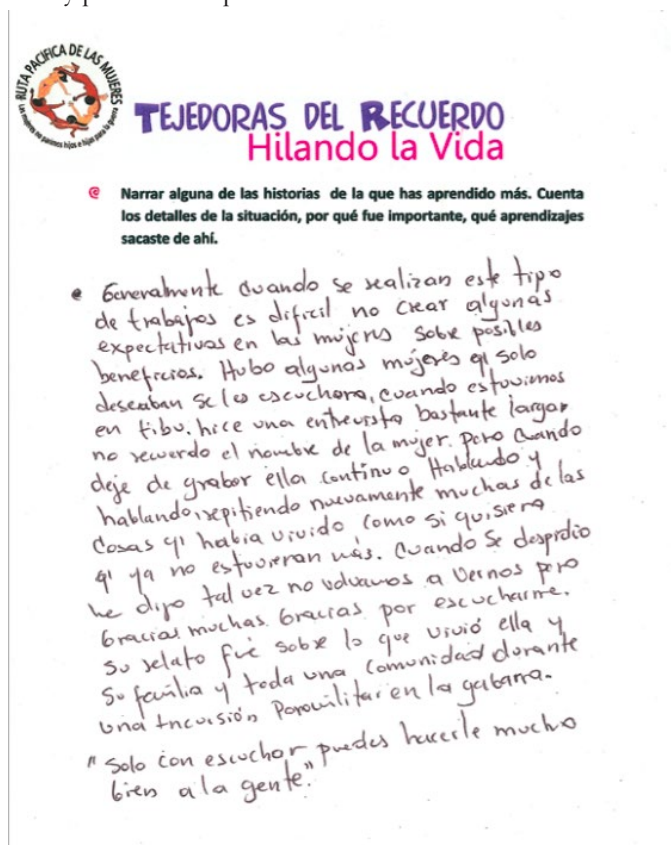 RUTA PACÍFICA DE LAS MUJERES
TEJEDORAS DEL RECUERDO
Hilando la Vida
Narrar alguna de las historias de la que has aprendido más. Cuenta
los detalles de la situación, por qué fue importante, qué aprendizajes
sacaste de ahí.
Generalmente cuando se realizan este tipo
de trabajos es dificil no crear algunas
expectativas en las mujeres sobre posibles
beneficios. Hubo algunas mujeres q' solo
deseaban se les escuchara, cuando estuvimos
en tibu. hice una entrevista bastante larga
no recuerdo el nombre de la mujer. pero cuando
deje de grabar ella continuo Hablando y
hablando, repitiendo nuevamente muchas de las
cosas q' habia vivido como si quisiera
q' ya no estuvieran más. Cuando se despidio
me dijo tal vez no volvamos a vernos pero
Gracias muchas Gracias por escucharme.
Su relato fué sobre lo que vivió ella y
su familia y toda una comunidad durante
una incursión Paramilitar en la gabarra.
"Solo con escuchar puedes hacerle mucho
bien a la gente."